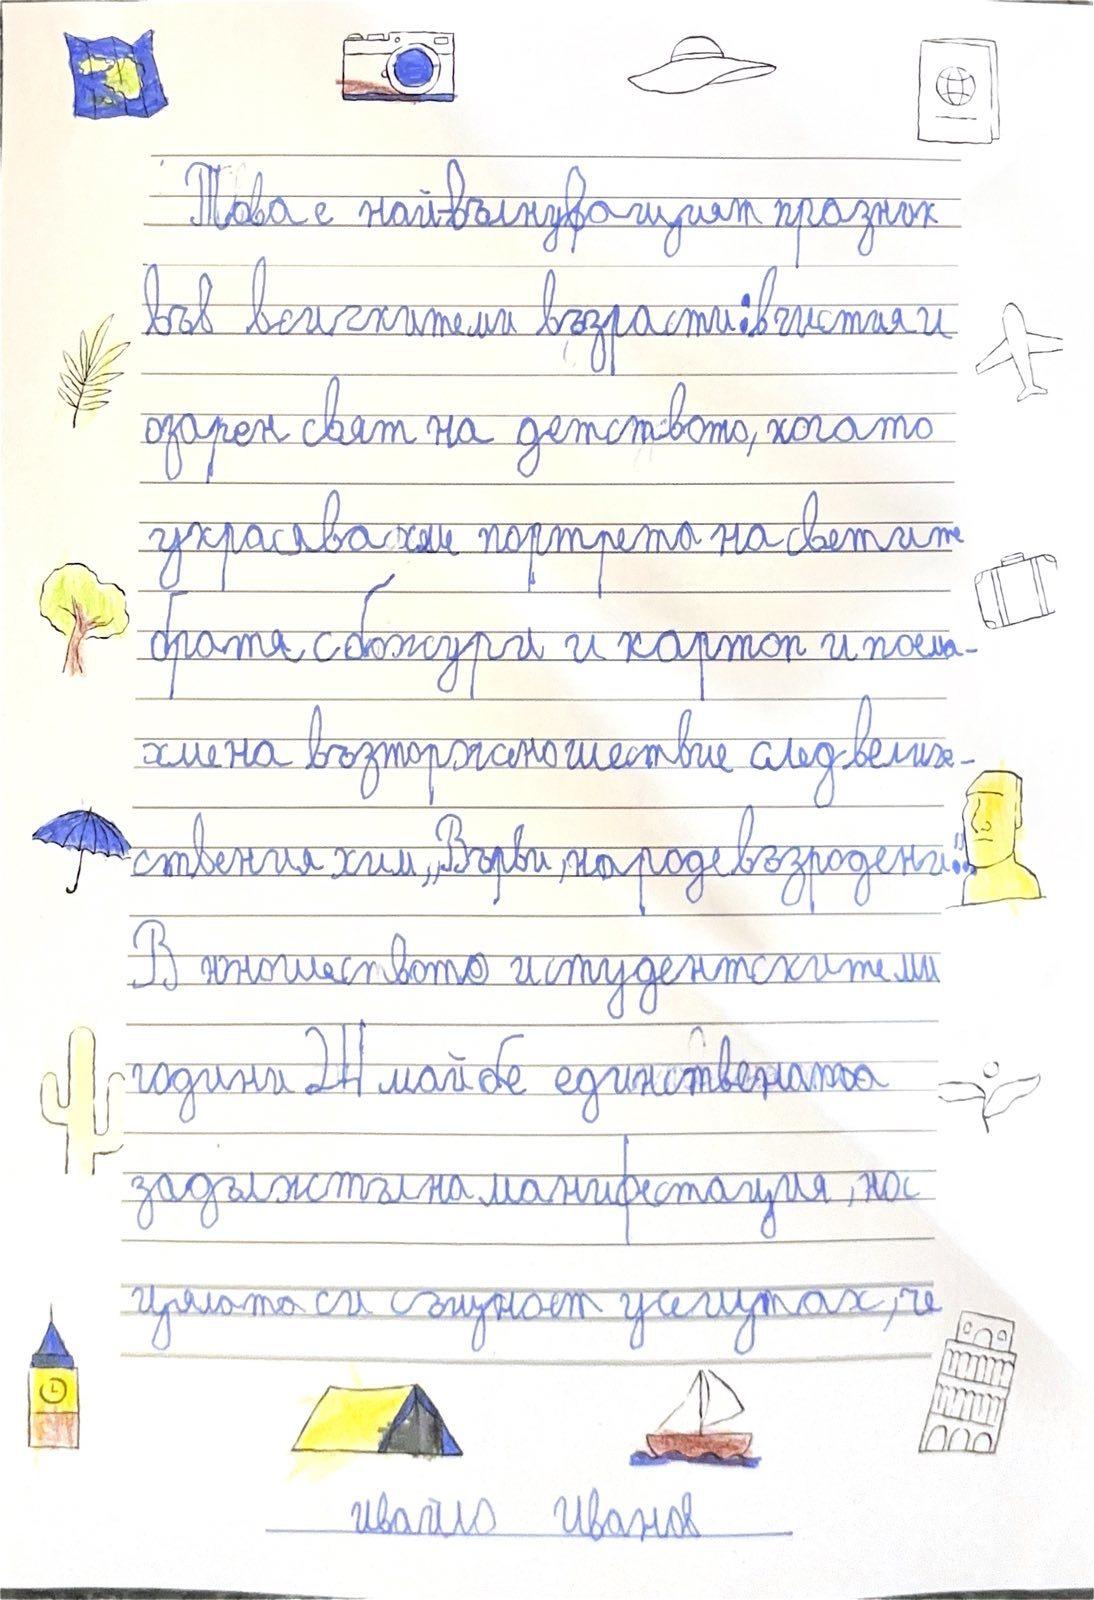 Това е най-вълнуващият празник
във всичките ми възрасти: в чистия и
озарен свят на детството, когато
украсявахме портрета на светите
братя с божури и картоп и поема-
хме на възторжено шествие след величе-
ствения химн „Върви, народе възродени“.
В юношеството и студентските ми
години 24 май бе единствената
задължителна манифестация, но с
цялата си същност усещах, че
Ивайло Иванов